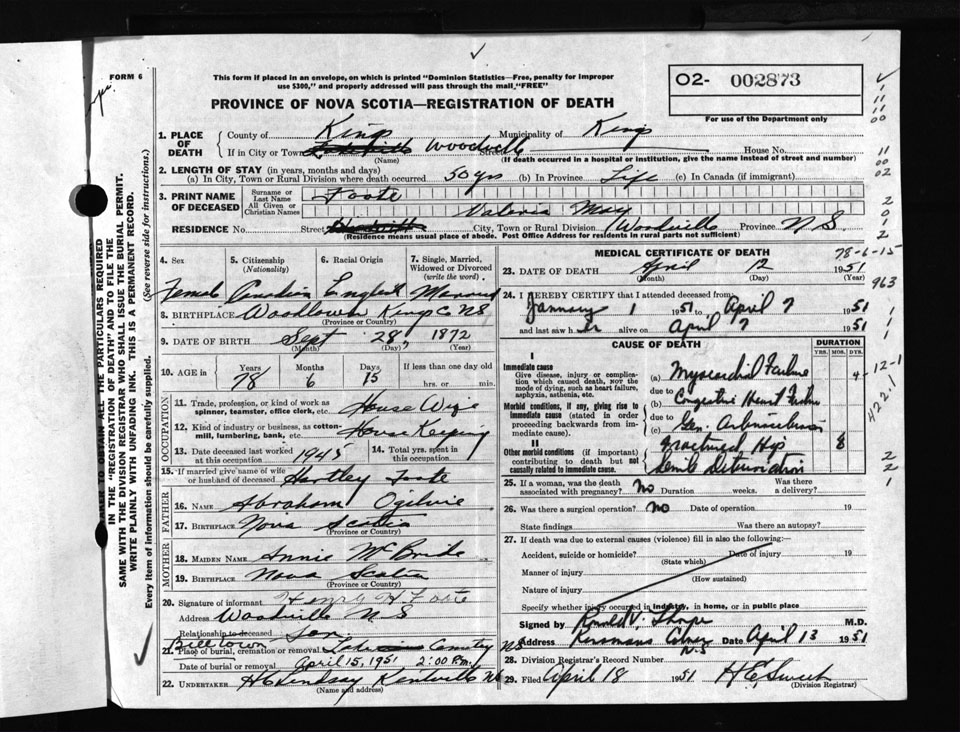 FORM 6
This form if placed in an envelope, on which is printed "Dominion Statistics—Free, penalty for improper
use $300," and properly addressed will pass through the mail, "FREE"
PROVINCE OF NOVA SCOTIA—REGISTRATION OF DEATH
O2- 002873
For use of the Department only
1. PLACE OF DEATH
County of Kings Municipality of Kings
If in City or Town Woodville Street House No.
(Name) (If death occurred in a hospital or institution, give the name instead of street and number)
2. LENGTH OF STAY (in years, months and days)
(a) In City, Town or Rural Division where death occurred 50 yrs (b) In Province Life (c) In Canada (if immigrant)
3. PRINT NAME OF DECEASED
Surname or Last Name Foote
All Given or Christian Names Valeria May
RESIDENCE No. Street City, Town or Rural Division Woodville Province N.S.
(Residence means usual place of abode. Post Office Address for residents in rural parts not sufficient)
4. Sex Female
5. Citizenship (Nationality) Canadian
6. Racial Origin English
7. Single, Married, Widowed or Divorced (write the word) Married
8. BIRTHPLACE Kings Co NS
(Province or Country)
9. DATE OF BIRTH Sept 28, 1872
(Month) (Day) (Year)
10. AGE in Years 78 Months 6 Days 15 If less than one day old hrs. or min.
OCCUPATION
11. Trade, profession, or kind of work as spinner, teamster, office clerk, etc. House Wife
12. Kind of industry or business, as cotton-mill, lumbering, bank, etc. House Keeping
13. Date deceased last worked at this occupation 1945
14. Total yrs. spent in this occupation
15. If married give name of wife or husband of deceased Hartley Foote
FATHER
16. NAME Abraham Ogilvie
17. BIRTHPLACE Nova Scotia
(Province or Country)
MOTHER
18. MAIDEN NAME Annie McBride
19. BIRTHPLACE Nova Scotia
(Province or Country)
20. Signature of informant Henry H Foote
Address Woodville N S
Relationship to deceased Son
Billtown
21. Place of burial, cremation or removal Cemetry NS
Date of burial or removal April 15, 1951 2:00 P.m.
22. UNDERTAKER H C Lindsay Kentville NS
(Name and address)
MEDICAL CERTIFICATE OF DEATH
78-6-15
23. DATE OF DEATH April 12 1951
(Month) (Day) (Year)
963
24. I HEREBY CERTIFY that I attended deceased from:
January 1 1951 to April 7 1951
and last saw her alive on April 7 1951
CAUSE OF DEATH
DURATION
YRS. MOS. DYS.
I
Immediate cause
Give disease, injury or complication which caused death, NOT the mode of dying, such as heart failure, asphyxia, asthenia, etc.
(a) Myocardial Failure
due to
Morbid conditions, if any, giving rise to immediate cause (stated in order proceeding backwards from immediate cause).
(b) Congestive Heart Failure
due to
(c) Gen. Arteriosclerosis
II
Other morbid conditions (if important) contributing to death but not causally related to immediate cause.
Fractured Hip 8
Senile Deterioration
4-12-1
4221
25. If a woman, was the death associated with pregnancy? No Duration weeks. Was there a delivery?
26. Was there a surgical operation? No Date of operation 19
State findings Was there an autopsy?
27. If death was due to external causes (violence) fill in also the following:—
Accident, suicide or homicide? Date of injury 19
(State which)
Manner of injury
(How sustained)
Nature of injury
Specify whether injury occurred in industry, in home, or in public place
Signed by Ronald V. Thorpe M.D.
Address N.S Date April 13 1951
28. Division Registrar's Record Number
29. Filed April 18 1951 H E Sweet
(Division Registrar)
IN THE "REGISTRATION OF DEATH" AND TO FILE THE
SAME WITH THE DIVISION REGISTRAR WHO SHALL ISSUE THE BURIAL PERMIT.
WRITE PLAINLY WITH UNFADING INK. THIS IS A PERMANENT RECORD.
Every item of information should be carefully supplied. (See reverse side for instructions.)